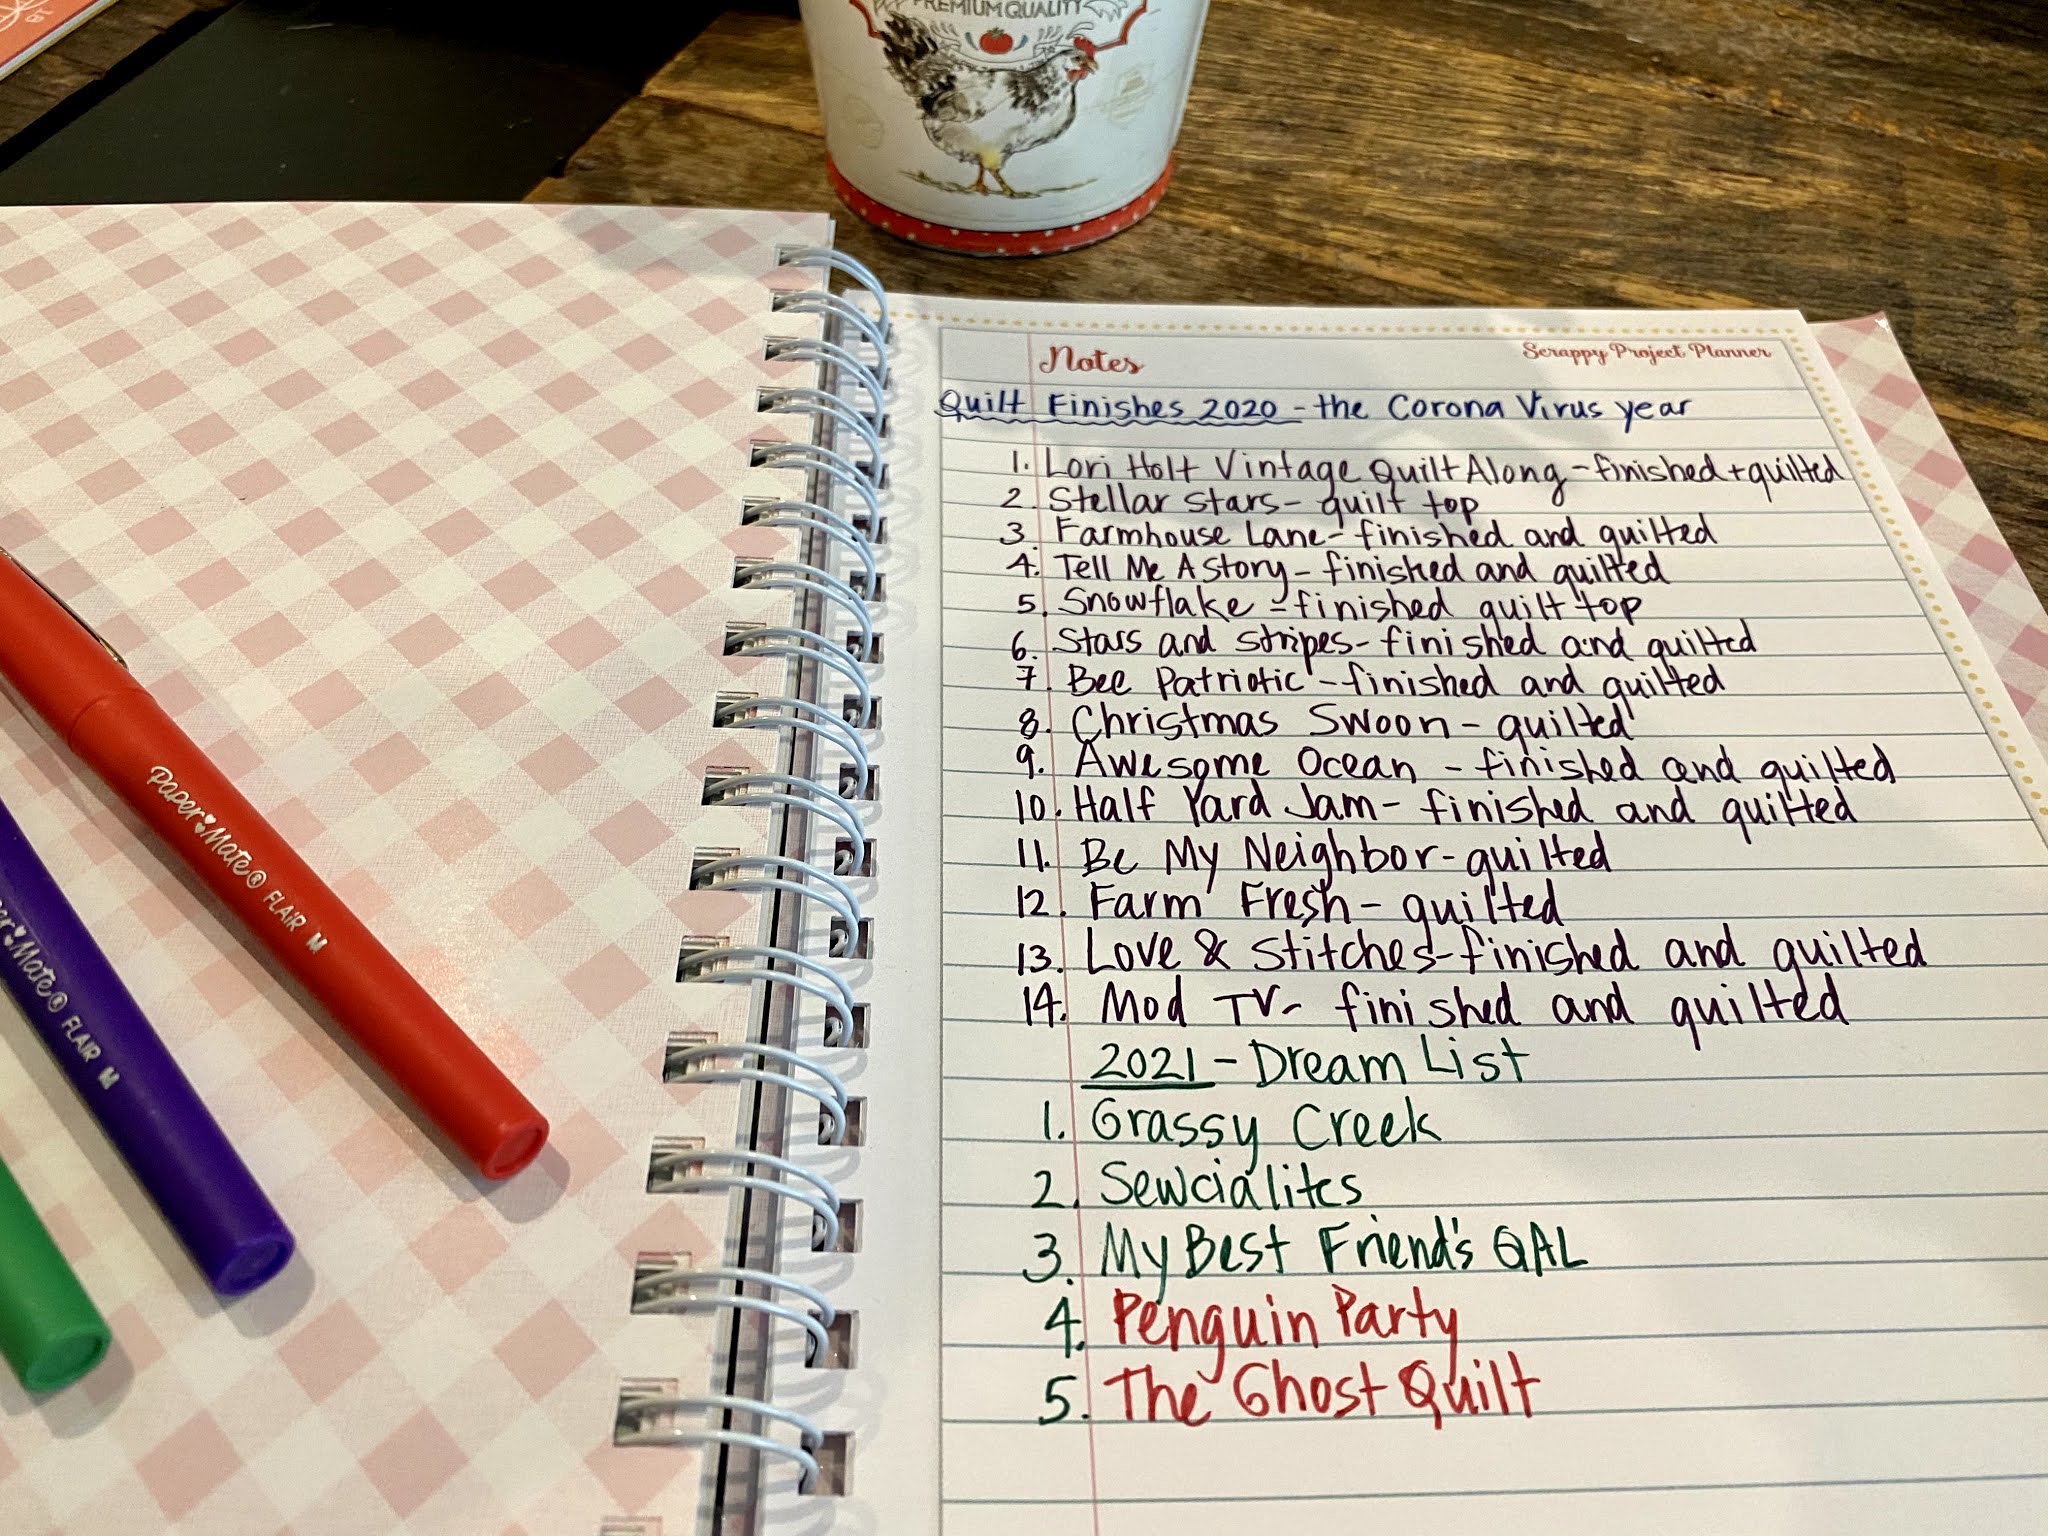 PREMIUM QUALITY
Notes
Scrappy Project Planner
Quilt Finishes 2020 - the Corona Virus year
1. Lori Holt Vintage Quilt Along - finished + quilted
2. Stellar Stars - quilt top
3. Farmhouse Lane - finished and quilted
4. Tell Me A Story - finished and quilted
5. Snowflake - finished quilt top
6. Stars and Stripes - finished and quilted
7. Bee Patriotic - finished and quilted
8. Christmas Swoon - quilted
9. Awesome Ocean - finished and quilted
10. Half Yard Jam - finished and quilted
11. Be My Neighbor - quilted
12. Farm Fresh - quilted
13. Love & Stitches - finished and quilted
14. Mod TV - finished and quilted
2021 - Dream List
1. Grassy Creek
2. Sewcialites
3. My Best Friend's QAL
4. Penguin Party
5. The Ghost Quilt
Paper Mate® FLAIR M
Mate® FLAIR M